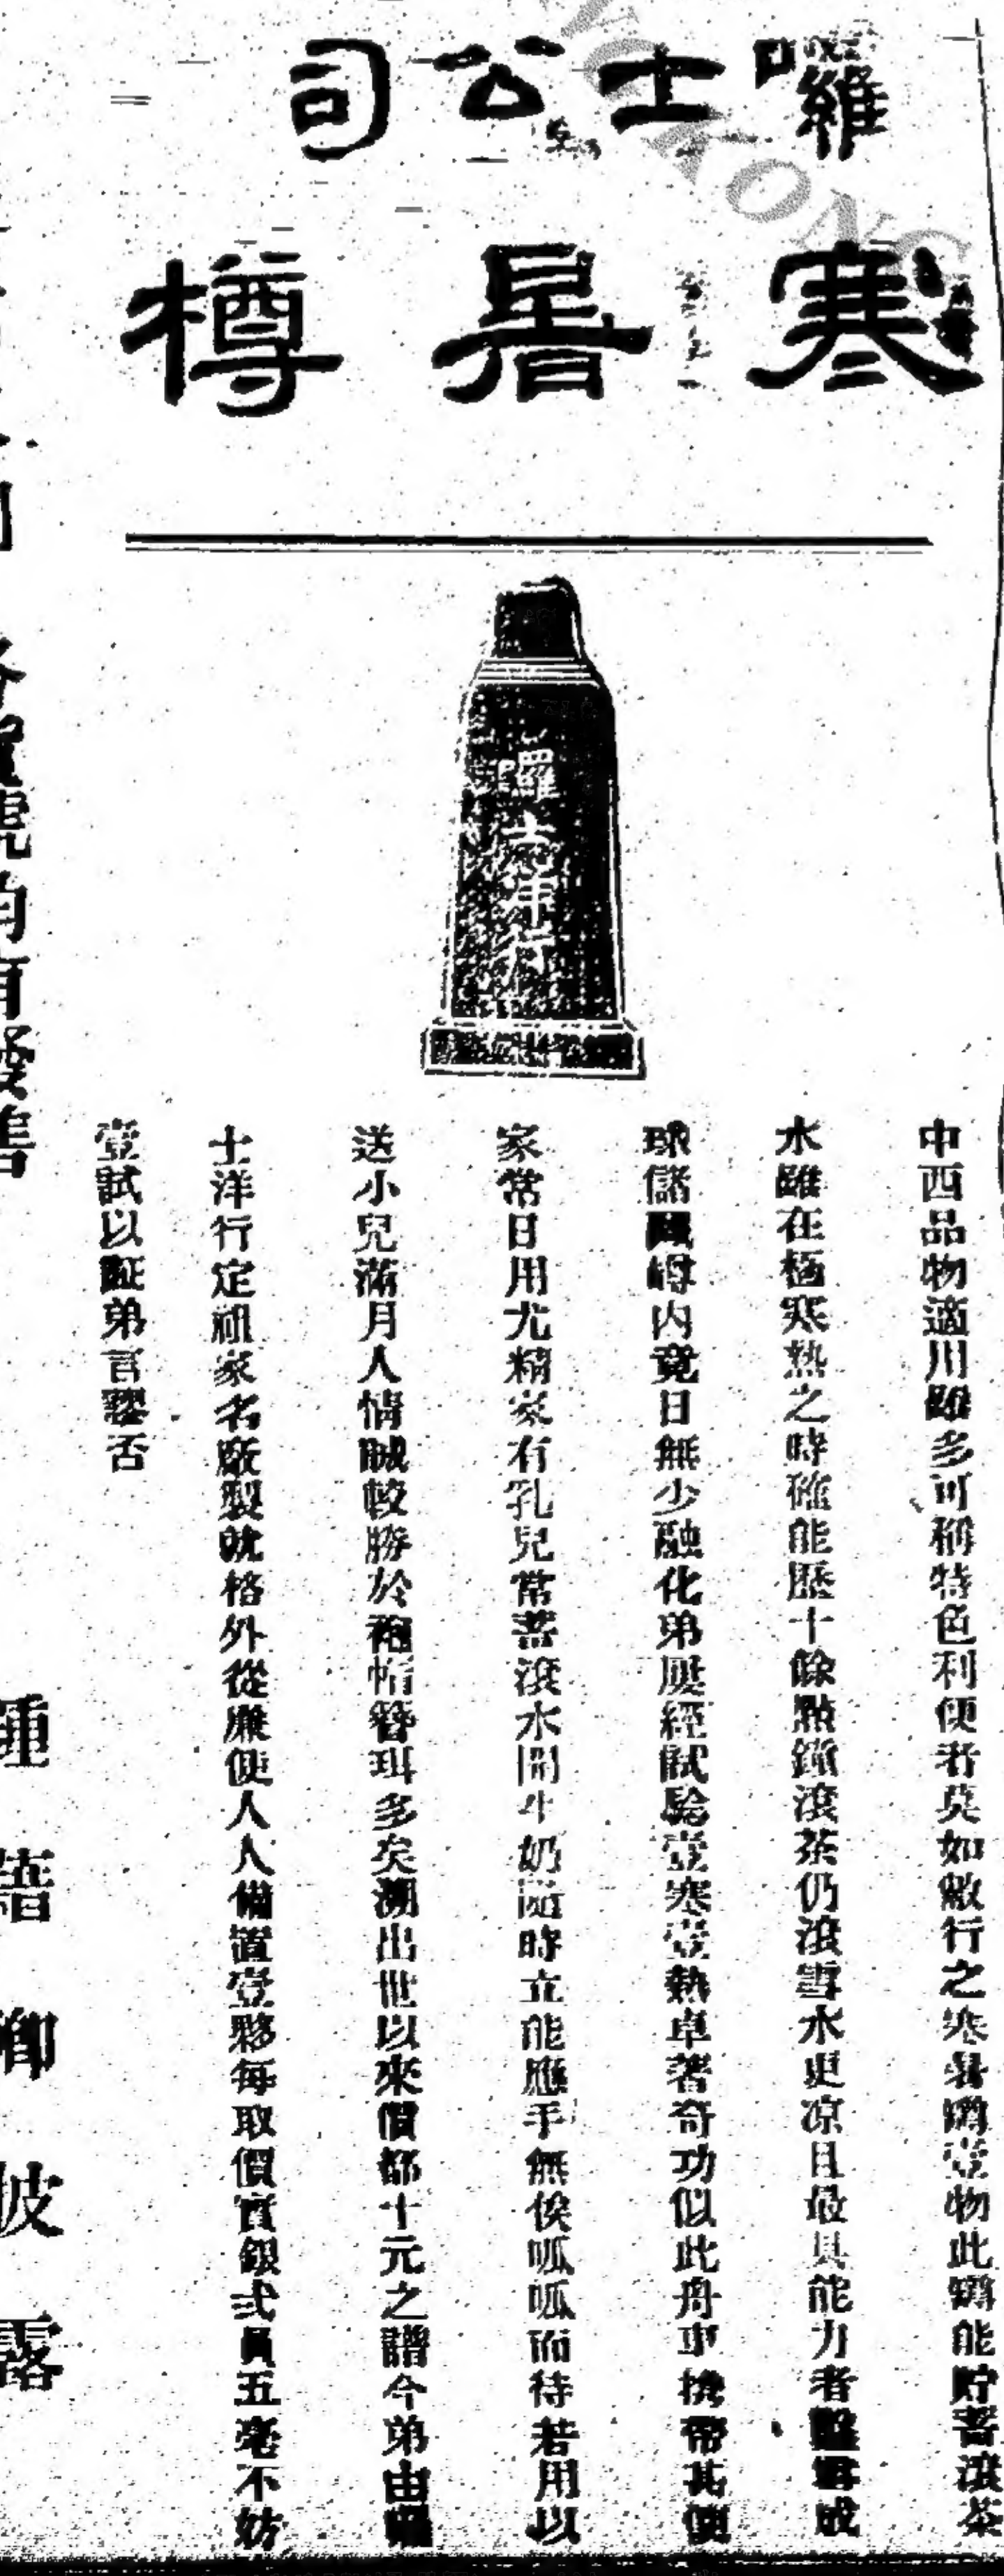 囉士公司
寒暑樽
囉士洋行
中西品物適用雖多可稱特色利便者莫如敝行之寒暑罇壹物此罇能貯蓄滾茶
水雖在極寒熱之時確能歷十餘點鐘滾茶仍滾雪水更凉且最具能力者雪成
球儲罇內竟日無少融化弟屢經試驗壹寒壹熱卓著奇功似此舟車携帶甚便
家常日用尤精家有乳兒常蓄滾水開牛奶隨時立能應手無俟呱呱而待若用以
送小兒滿月人情誠較勝於袍帽簪珥多矣溯出世以來價都十元之譜今弟由囉
士洋行定祖家名廠製就格外從廉使人人備置壹夥每取價實銀弍員五毫不妨
壹試以証弟言謬否
各寶號均有發售
鍾蓍卿披露